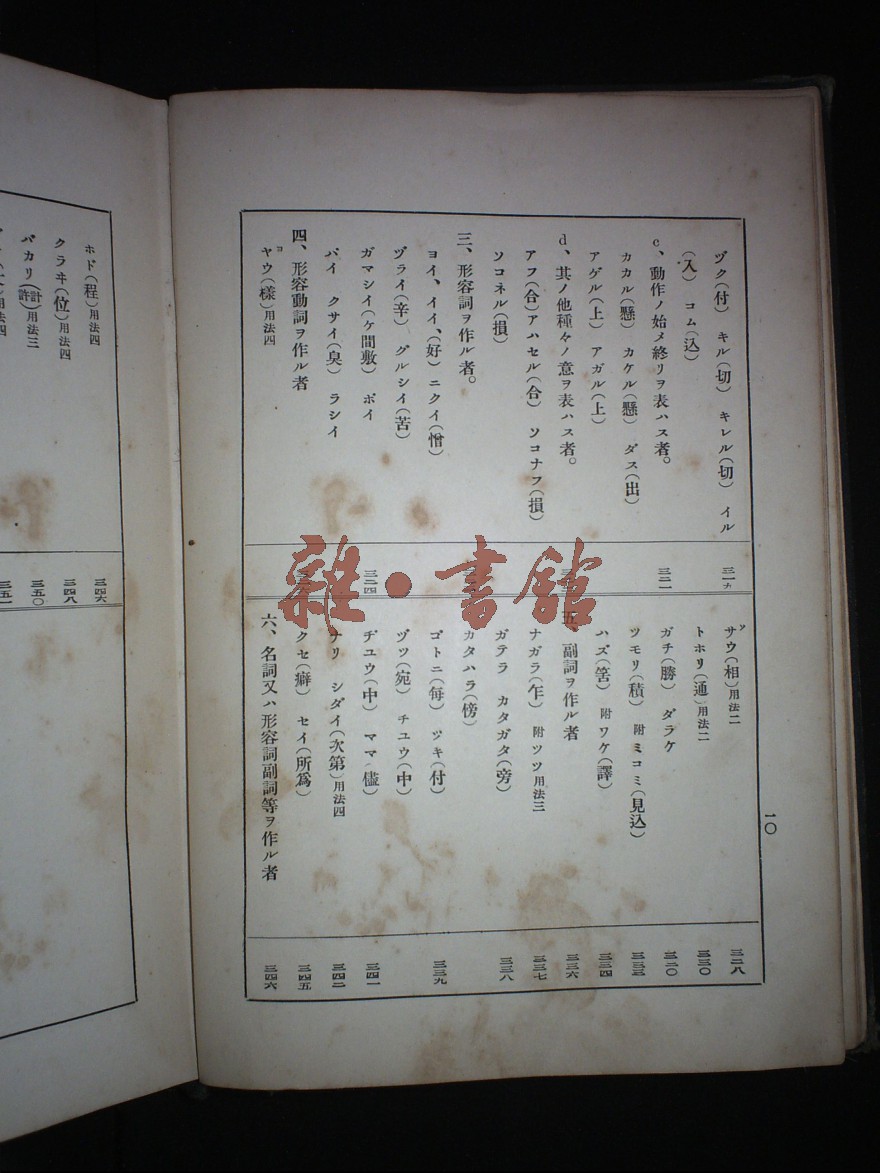 ヅク(付) キル(切) キレル(切) イル
三一九
(入) コム(込)
c、動作ノ始メ終リヲ表ハス者。
三二一
カカル(懸) カケル(懸) ダス(出)
アゲル(上) アガル(上)
d、其ノ他種々ノ意ヲ表ハス者。
アフ(合)アハセル(合) ソコナフ(損)
ソコネル(損)
三、形容詞ヲ作ル者。
ヨイ、イイ、(好) ニクイ(憎)
ヅライ(辛) グルシイ(苦)
ガマシイ(ケ間敷) ポイ
三二四
バイ クサイ(臭) ラシイ
四、形容動詞ヲ作ル者
ヤウ(樣)用法四
サウ(相)用法二
三二八
トホリ(通)用法二
三三〇
ガチ(勝) ダラケ
三三〇
ツモリ(積) 附ミコミ(見込)
三三三
ハズ(筈) 附ワケ(譯)
三三四
五、副詞ヲ作ル者
三三六
ナガラ(乍) 附ツツ用法三
三三七
ガテラ カタガタ(旁)
三三八
カタハラ(傍)
ゴトニ(每) ヅキ(付)
三三九
ヅツ(宛) チユウ(中)
ヂユウ(中) ママ(儘)
三四一
ナリ シダイ(次第)用法四
三四二
クセ(癖) セイ(所爲)
三四五
六、名詞又ハ形容詞副詞等ヲ作ル者
三四六
一〇
ホド(程)用法四
三四六
クラヰ(位)用法四
三四八
バカリ(計許)用法三
三五〇
用法四
三五一
雜·書館